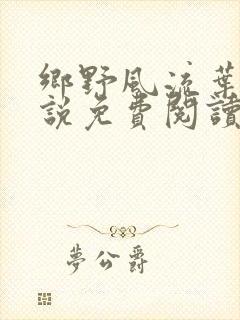 鄉野風流葉
說免費閱讀
夢公爵